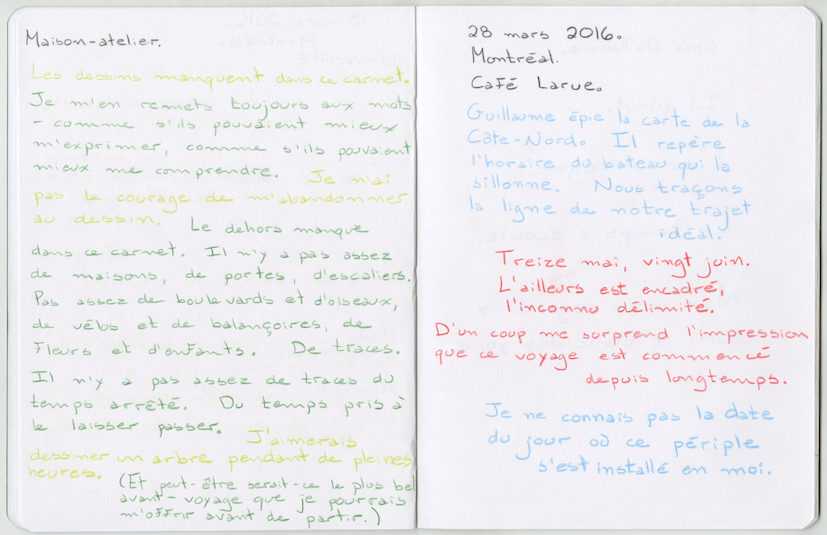 Maison-atelier.
Les dessins manquent dans ce carnet.
Je m'en remets toujours aux mots
- comme s'ils pouvaient mieux
m'exprimer, comme s'ils pouvaient
mieux me comprendre. Je n'ai
pas le courage de m'abandonner
au dessin. Le dehors manque
dans ce carnet. Il n'y a pas assez
de maisons, de portes, d'escaliers.
Pas assez de boulevards et d'oiseaux,
de vélos et de balançoires, de
fleurs et d'enfants. De traces.
Il n'y a pas assez de traces du
temps arrêté. Du temps pris à
le laisser passer. J'aimerais
dessiner un arbre pendant de pleines
heures. (Et peut-être serait-ce le plus bel
avant-voyage que je pourrais
m'offrir avant de partir.)
28 mars 2016.
Montréal.
Café Larue.
Guillaume épie la carte de la
Côte-Nord. Il repère
l'horaire du bateau qui la
sillonne. Nous traçons
la ligne de notre trajet
idéal.
Treize mai, vingt juin.
L'ailleurs est encadré,
l'inconnu délimité.
D'un coup me surprend l'impression
que ce voyage est commencé
depuis longtemps.
Je ne connais pas la date
du jour où ce périple
s'est installé en moi.